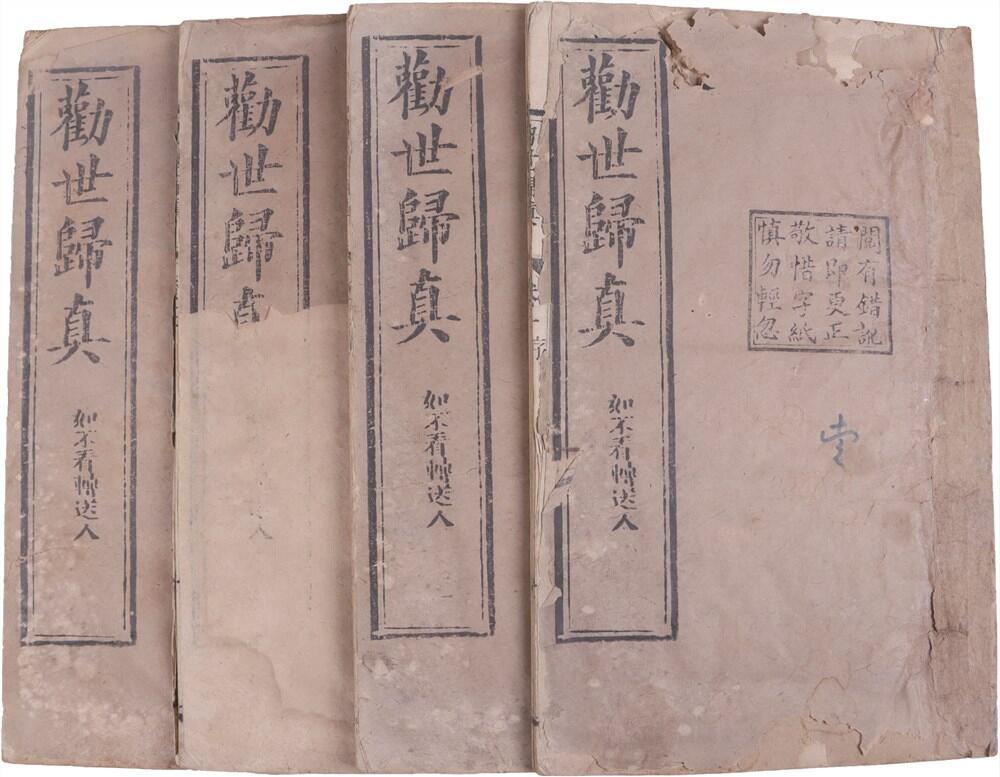 閱有錯訛
請即更正
敬惜字紙
慎勿輕忽
勸世歸真
如不看轉送人
勸世歸真
如不看轉送人
勸世歸真
人
勸世歸真
如不看轉送人